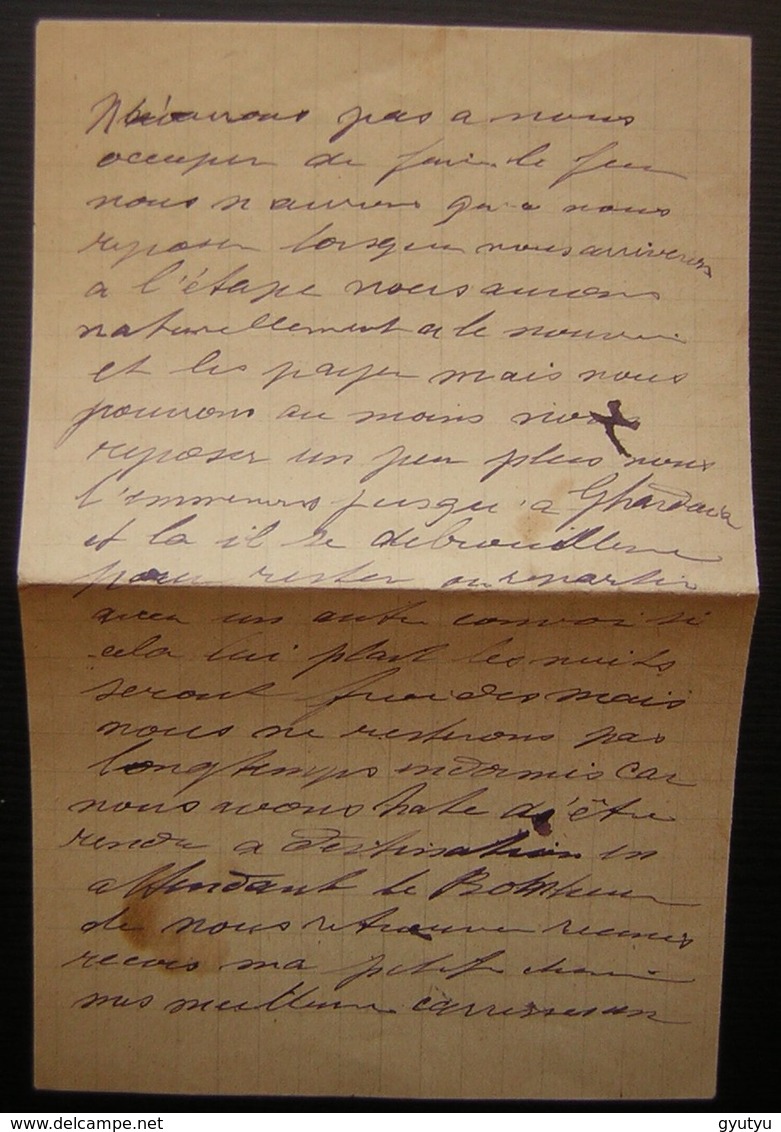 N'aurons pas a nous
occuper de faire le feu
nous n aurons qu a nous
reposer lorsque nous arriverons
a l'étape nous aurons
naturellement a le nourrir
et les payer mais nous
pourrons au moins nous
reposer un peu plus nous
l'emmenerons jusqu'a Ghardaia
et la il se debrouillera
pour rester ou repartir
avec un autre convoi si
cela lui plait les nuits
seront froides mais
nous ne resterons pas
longtemps endormis car
nous avons hate d'être
rendu a destination en
attendant le Bonheur
de nous retrouver reunis
recois ma petite cherie
mes meilleures carresses un
www.delcampe.net
gyutyu